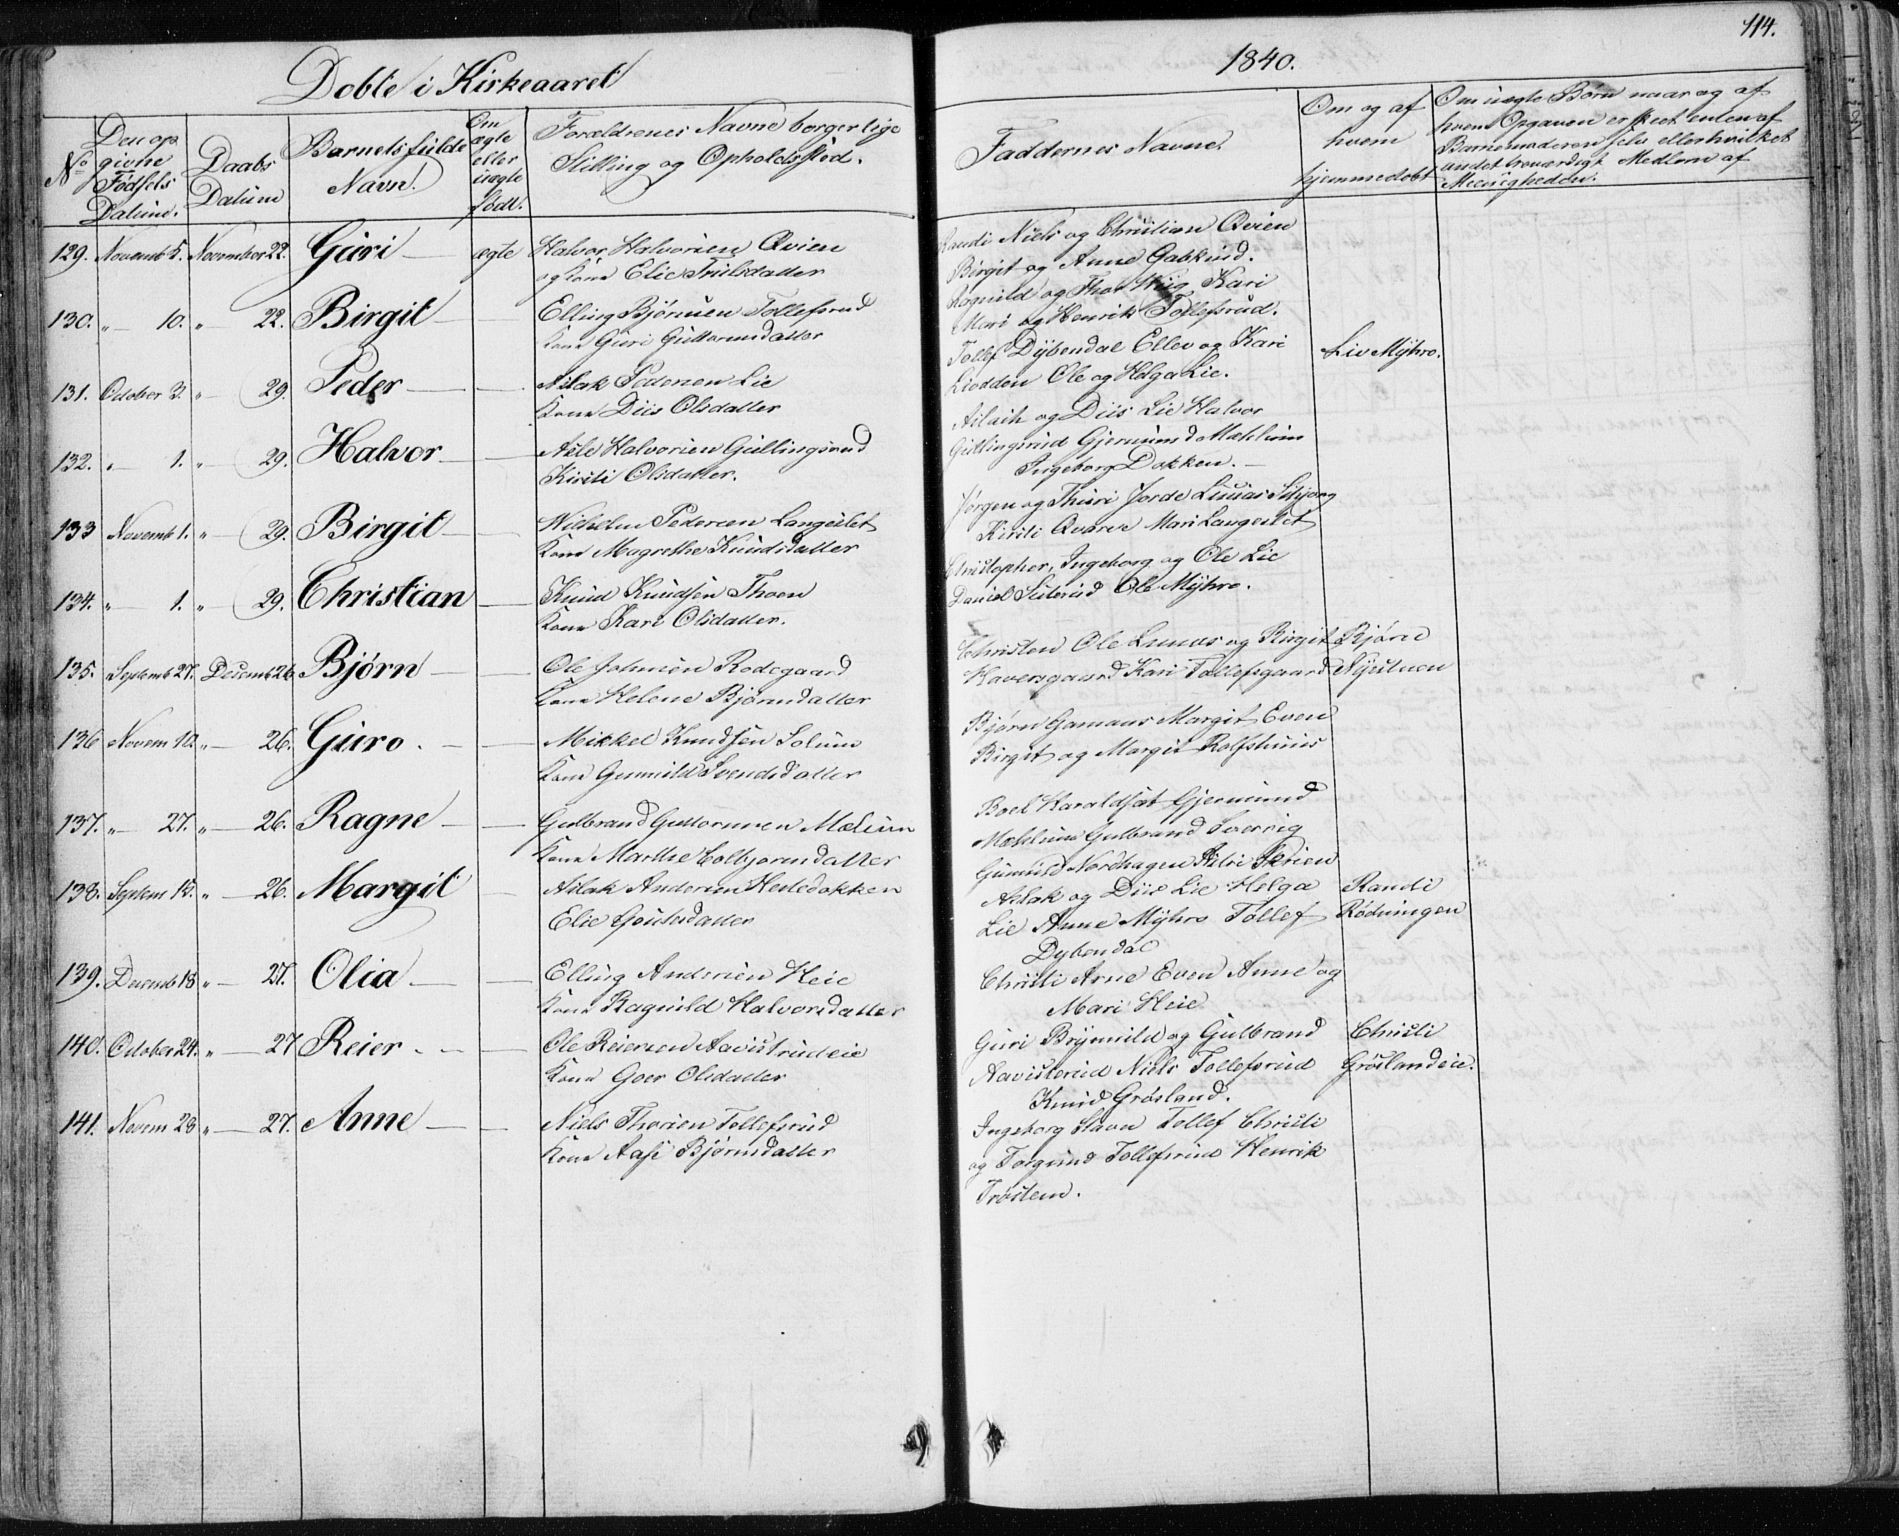 114.
Døbte i Kirkeaaret
1840.
No
Den op
givne
Fødsels
Datum.
Daabs
Datum
Barnets fulde
Navn.
Om
ægte
eller
uægte
født.
Forældrenes Navne borgerlige
Stilling og Opholdssted.
Faddernes Navne.
Om og af
hvem
hjemmedøbt
Om uægte Børn naar og af
hvem Opgaven er skeet enten af
Barnemoderen selv eller hvilket
andet troværdigt Medlem af
Meenigheden.
129. Novemb 5. November 22. Guri — ægte Halvor Halvorsen Qvien
og Kone Elie Trulsdatter
Randi Niels og Christian Qvien
Birgit og Anne Gabkind.
130. " 10. " 22. Birgit — Elling Bjørnsen Tollefsrud
Kone Guri Guttormsdatter
Ragnild og Thor Wiig Kari
Mari og Henrik Tollefsrud.
131. October 3. " 29. Peder — Aslak Pedersen Lie
Kone Diis Olsdatter
Tollef Dybendal Ellev og Kari
Liodden Ole og Helga Lie.
Liv Myhro.
132. " 1. " 29. Halvor — Asle Halvorsen Gullingsrud
Kirsti Olsdatter.
Aslach og Diis Lie Halvor
Gullingsrud Gjermund Mæhlum
Ingeborg Dokken.
133 Novemb 1. " 29. Birgit — Wilhelm Pedersen Langeslet
Kone Magrethe Knudsdatter
Jørgen og Thuri Jorde Lunas
Kirsti Qvarve Mari Langeslet
134. " 1. " 29. Christian — Knud Knudsen Thoen
Kone Kari Olsdatter.
Christopher, Ingeborg og Ole Lie
Daniel Ole Myhro.
135. Septemb 27. Decemb 26 Bjørn — Ole Johnsen Rodegaard
Kone Helene Bjørnsdatter
Christen Ole Lunas og Birgit
Haversgaard Kari Tollefsgaard
Bjørn
Nystuen
136 Novem 10. " 26. Guro. — Mikkel Knudsen Solum
Kone Gunnild Svendsdatter
Bjørn Gamaas Margit Even
Birgit og Margit Rolfshuus
137. " 27. " 26. Ragne — Gulbrand Guttormsen Mælum
Kone Marthe Colbjørnsdatter
Boel Haraldset Gjermund
Mæhlum Gulbrand
Gunuld Nordhagen Skrien
138. Septem 15. " 26. Margit — Aslak Andersen Hestedokken
Elie Goutesdatter
Aslak og Diis Lie Helga
Lie Anne Myhro Tollef
Dybendal
Randi
Rødningen
139. Decemb 13 " 27. Olia. — Elling Andersen Heie
Kone Ragnild Halvorsdatter
Christi Arne Even Anne og
Mari Heie
140. October 24. " 27 Reier. — Ole Reiersen Aavistrudeie
Kone Goer Olsdatter
Guri Brynnild og Gulbrand
Aavisterud Niels Tollefsrud
Knud Grøsland.
Christi
Grøslandeie.
141. Novem 23 " 27. Anne — Niels Thorsen Tollefsrud
Kone Aase Bjørnsdatter
Ingeborg Stavn Tollef Christi
og Torgund Tollefsrud Henrik
Trøstem.